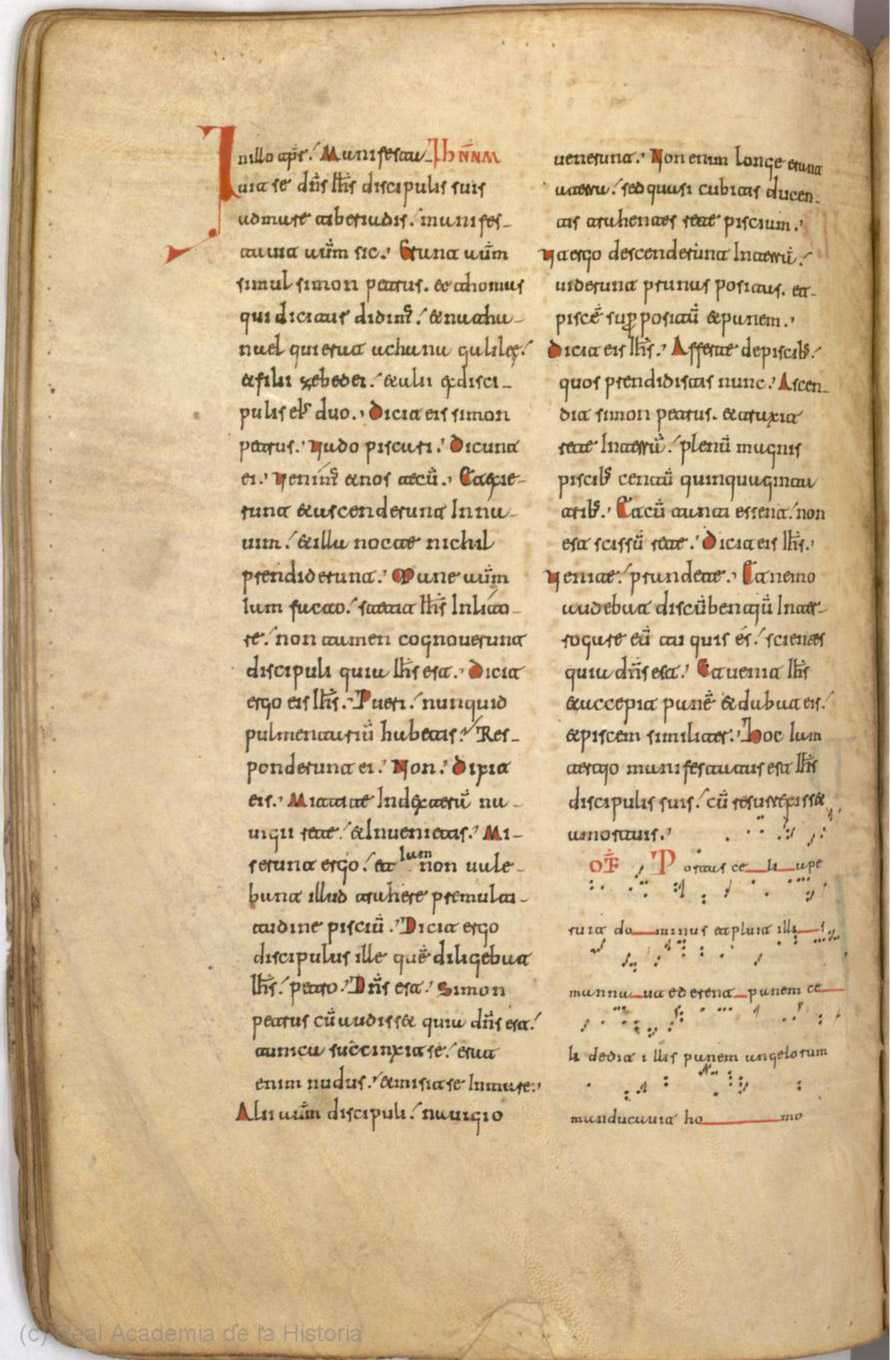 In illo tp̄r. Manifesta- Ihnnm
uit se dn̄s ih̄s discipulis suis
ad mare tiberiadis. manifes-
tauit aut̄m sic. Erant aut̄m
simul simon petrus. et thomas
qui dicitur didim'. & natha-
nael qui erat a chana galileę.
& filii zebedei. & alii ex disci-
pulis ei' duo. Dicit eis simon
petrus. Uado piscari. Dicunt
ei. Uenim' & nos tecū. Et exie-
runt & ascenderunt In na-
uim. & illa nocte nichil
prendiderunt. Mane aut̄m
iam facto. stetit ih̄s In lito-
re. non tamen cognouerunt
discipuli quia ih̄s est. Dicit
ergo eis ih̄s. Pueri. nunquid
pulmentariū habetis. Res-
ponderunt ei. Non. Dixit
eis. Mittite In dexterū na-
uigii rete. & Inuenietis. Mi-
serunt ergo. et iam non uale-
bant illud trahere pre multi-
tudine pisciū. Dicit ergo
discipulus ille quē diligebat
ih̄s. petro. Dn̄s est. Simon
petrus cū audisset quia dn̄s est.
tunica succinxit se. erat
enim nudus. & misit se In mare.
Alii aut̄m discipuli. nauigio
uenerunt. Non enim longe erant
a terra. sed quasi cubitis ducen-
tis trahentes rete piscium.
Ut ergo descenderunt In terrā.
uiderunt prunas positas. et
piscē sup̄positū & panem.
Dicit eis ih̄s. Afferte de piscib'.
quos prendidistis nunc. Ascen-
dit simon petrus. & traxit
rete In terrā. plenū magnis
piscib' centū quinquaginta
trib'. Et cū tanti essent. non
est scissū rete. Dicit eis ih̄s.
Uenite. prandete. Et nemo
audebat discūbentiū Inter-
rogare eū tu quis es. scientes
quia dn̄s est. Et uenit ih̄s
& accepit panē & dabat eis.
& piscem similiter. Hoc iam
tertio manifestatus est ih̄s
discipulis suis. cū resurrexisset
a mortuis.
OF Portas ce li ape
ruit do minus et pluit illi s
manna ut ederent panem ce
li dedit i llis panem angelorum
manducauit ho mo
(c) Real Academia de la Historia